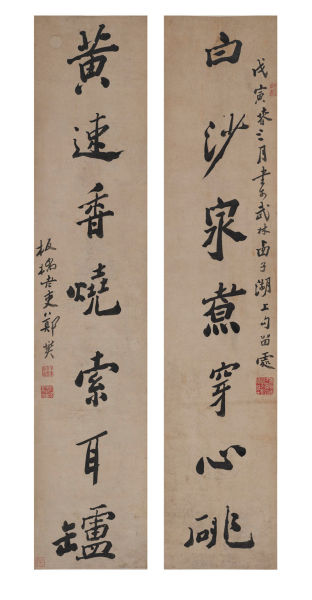 白沙泉煮穿心䂪
戊寅春三月書於武林西子湖上勾留處
黃速香燒索耳罏
板橋老吏鄭燮